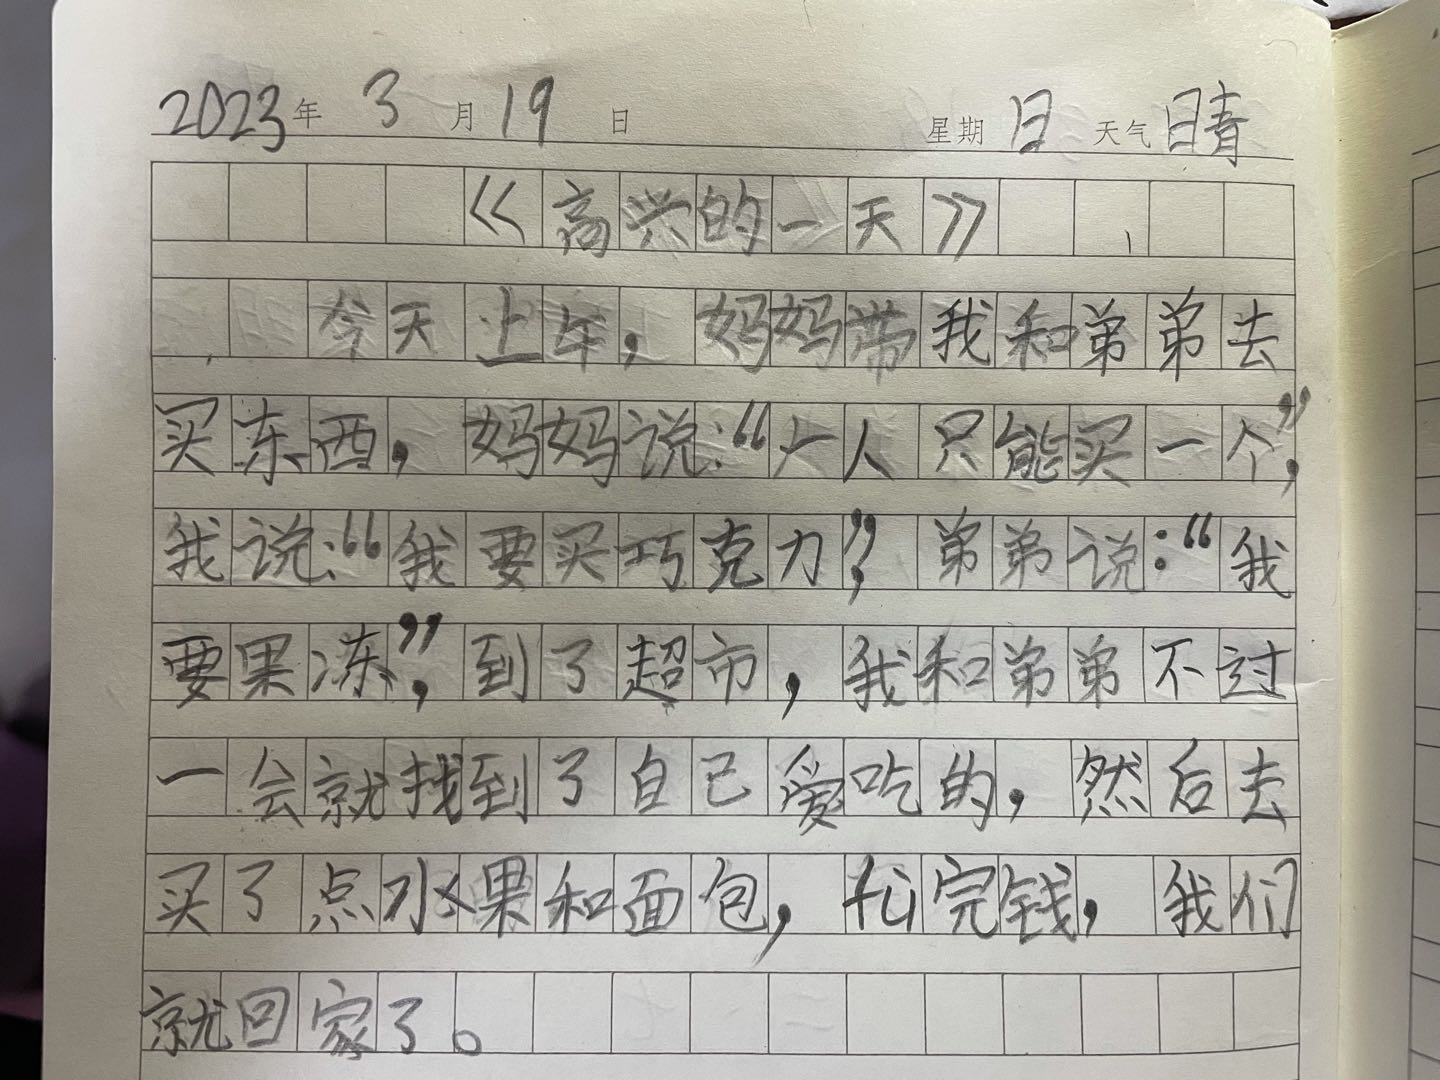 2023年 3月19日 星期日 天气晴
《高兴的一天》
今天上午，妈妈带我和弟弟去
买东西，妈妈说：“一人只能买一个”，
我说：“我要买巧克力”，弟弟说：“我
要果冻”，到了超市，我和弟弟不过
一会就找到了自己爱吃的，然后去
买了点水果和面包，付完钱，我们
就回家了。